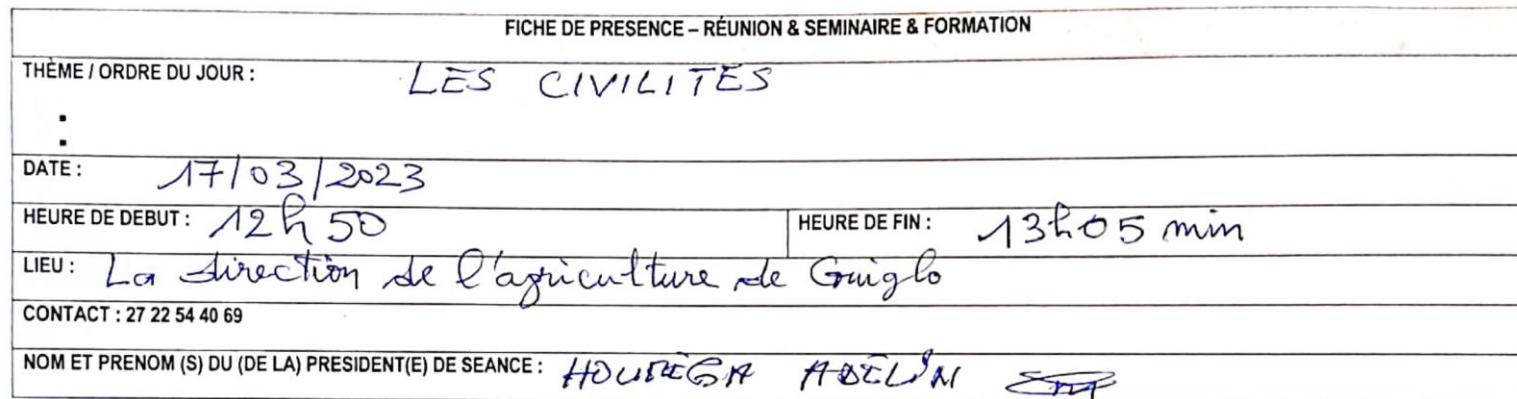 FICHE DE PRESENCE – RÉUNION & SEMINAIRE & FORMATION
THÈME / ORDRE DU JOUR : LES CIVILITES
▪
▪
DATE : 17/03/2023
HEURE DE DEBUT : 12h 50 HEURE DE FIN : 13h05 min
LIEU : La direction de l'agriculture de Guiglo
CONTACT : 27 22 54 40 69
NOM ET PRENOM (S) DU (DE LA) PRESIDENT(E) DE SEANCE : ADELIN